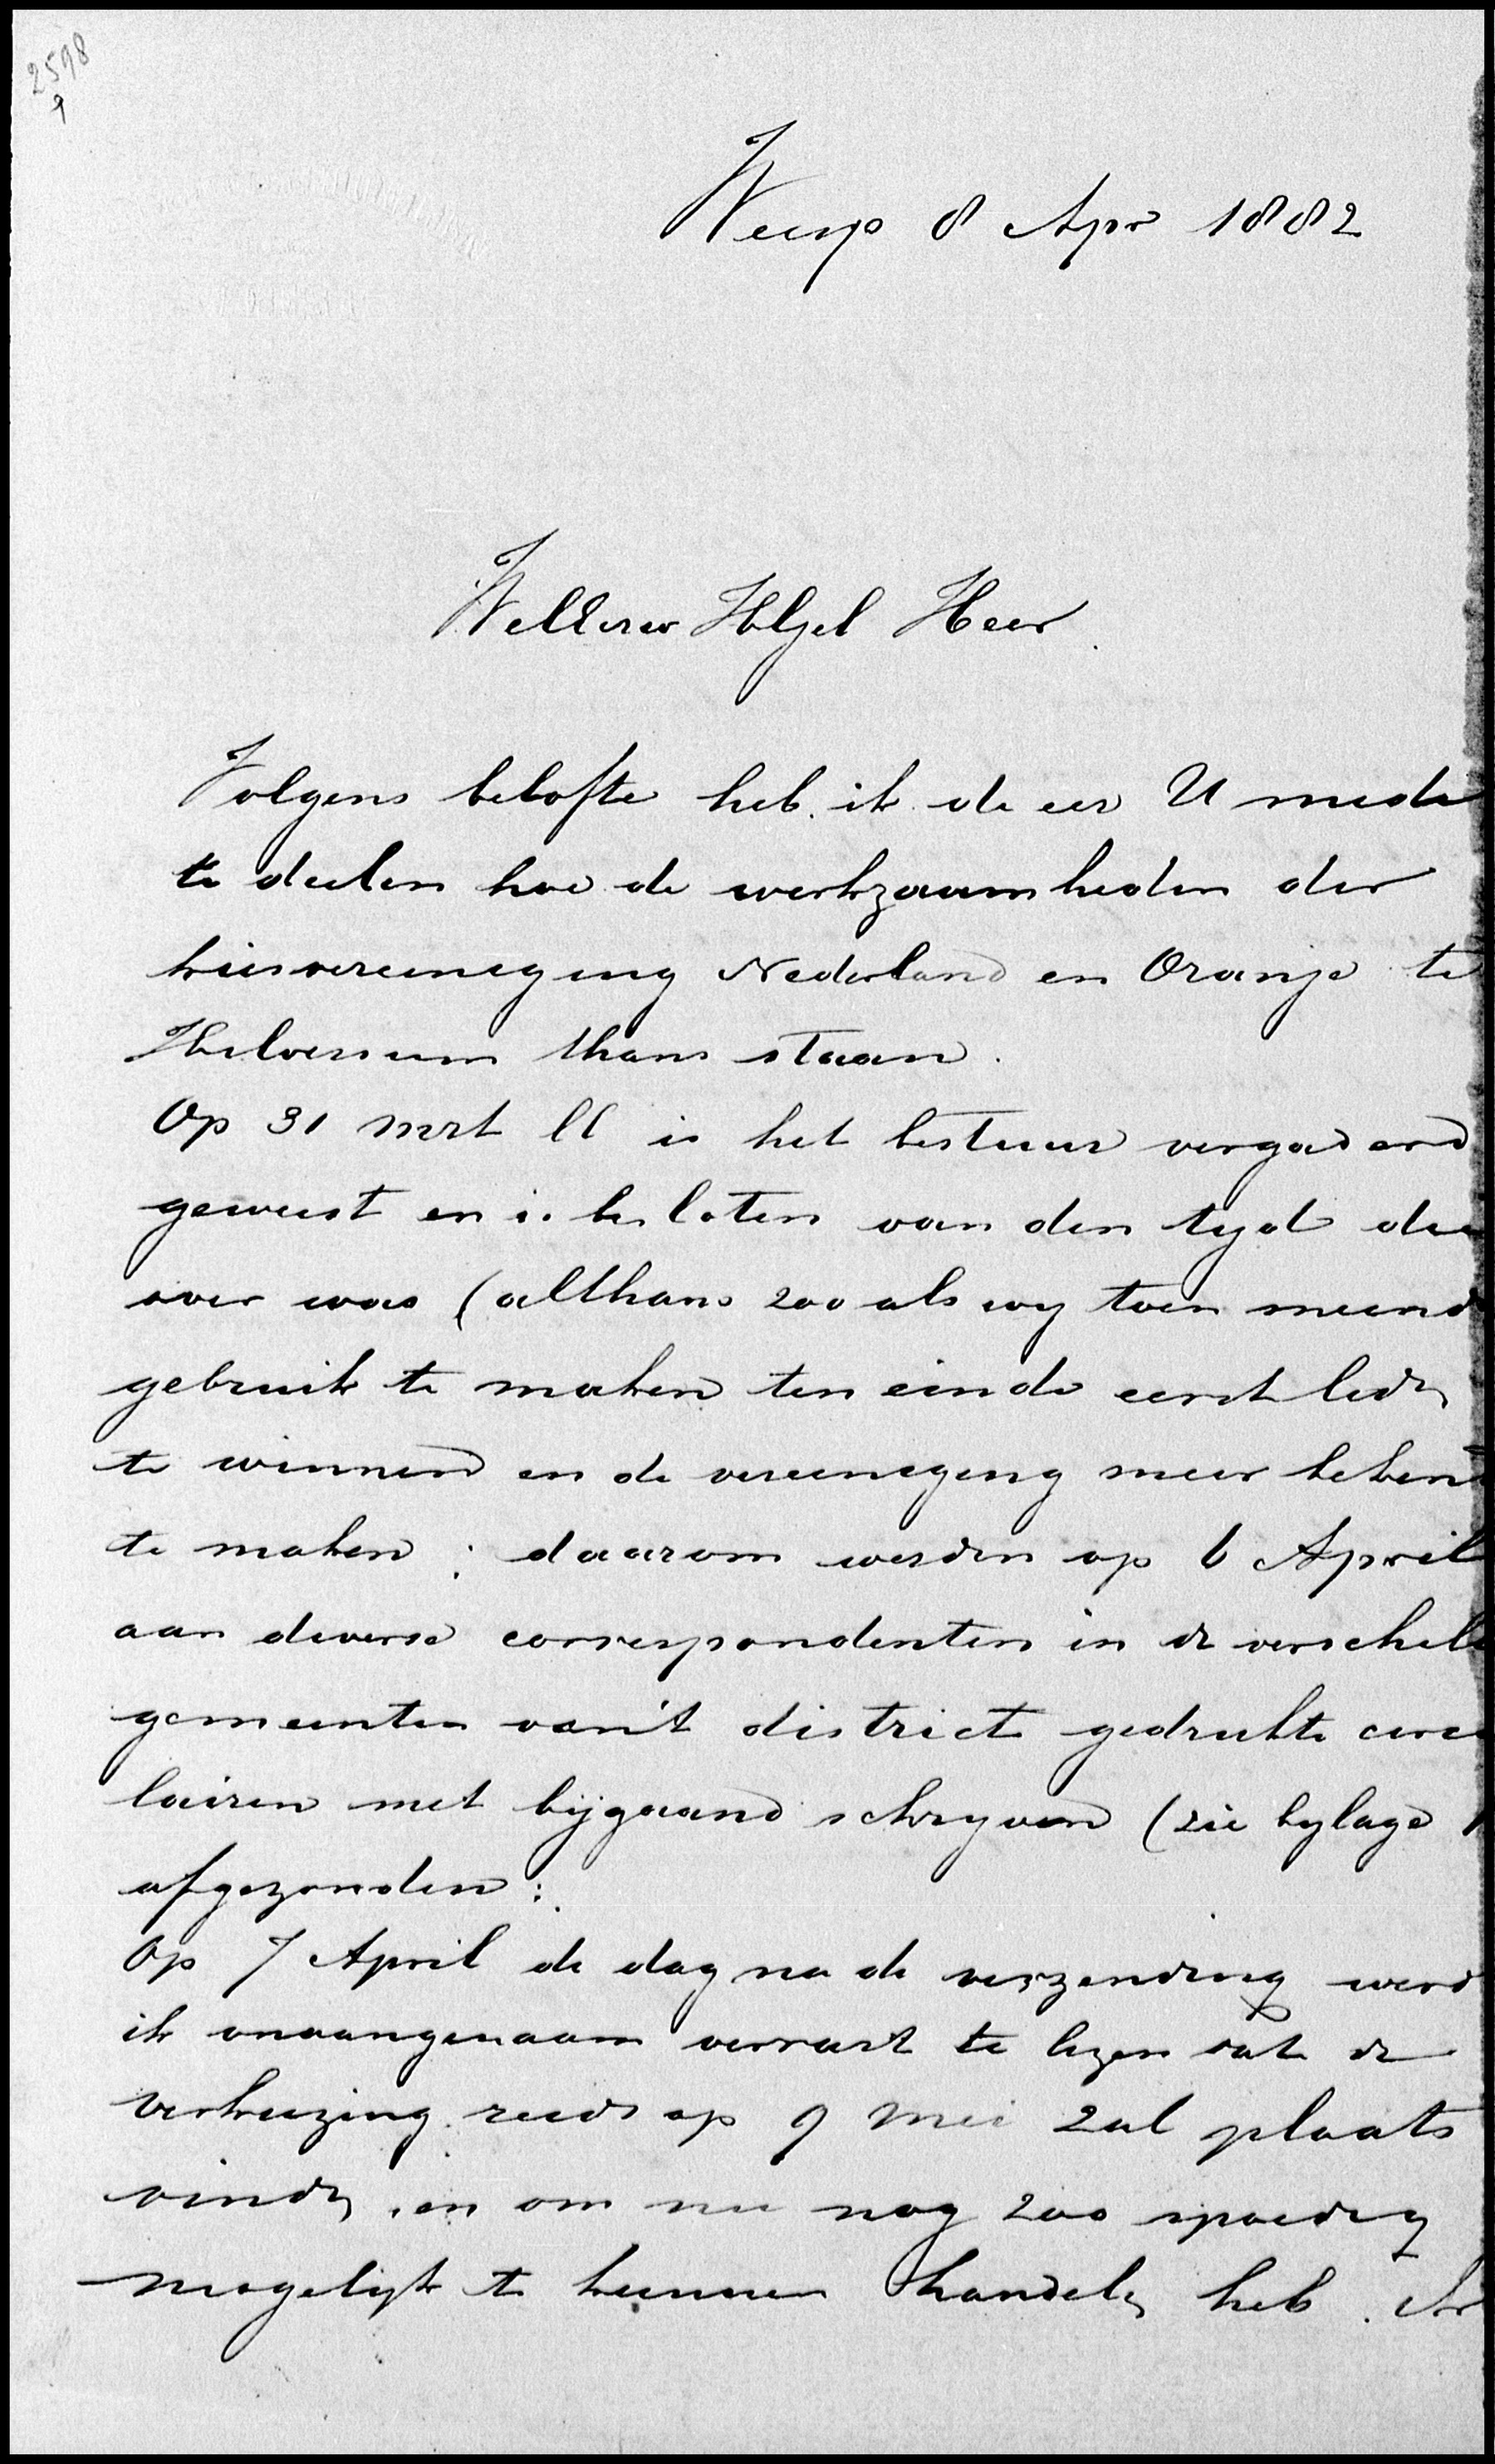 2598
9
Weesp 8 Apr 1882
WelEerw Hlgel Heer
Volgens belofte heb ik de eer U mede
te deelen hoe de werkzaamheden der
kiesvereeneging Nederland en Oranje te
Hilversum thans staan.
Op 31 Mrt ll is het bestuur vergaderd
geweest en is besloten van den tyd die
over was (althans zoo als wy toen meend
gebruik te maken ten einde eerst leden
te winnen en de vereeneging meer bekend
te maken ; daarom werden op 6 April
aan diverse correspondenten in de verschill
gemeenten van 't district gedrukte circu
lairen met bijgaand schryven (zie bylage 1
afgezonden :
Op 7 April de dag na de verzending werd
ik onaangenaam verrast te lezen dat de
verkiezing reeds op 9 Mei zal plaats
vinden, en om nu nog zoo spoedig
mogelijk te kunnen handelen heb ik